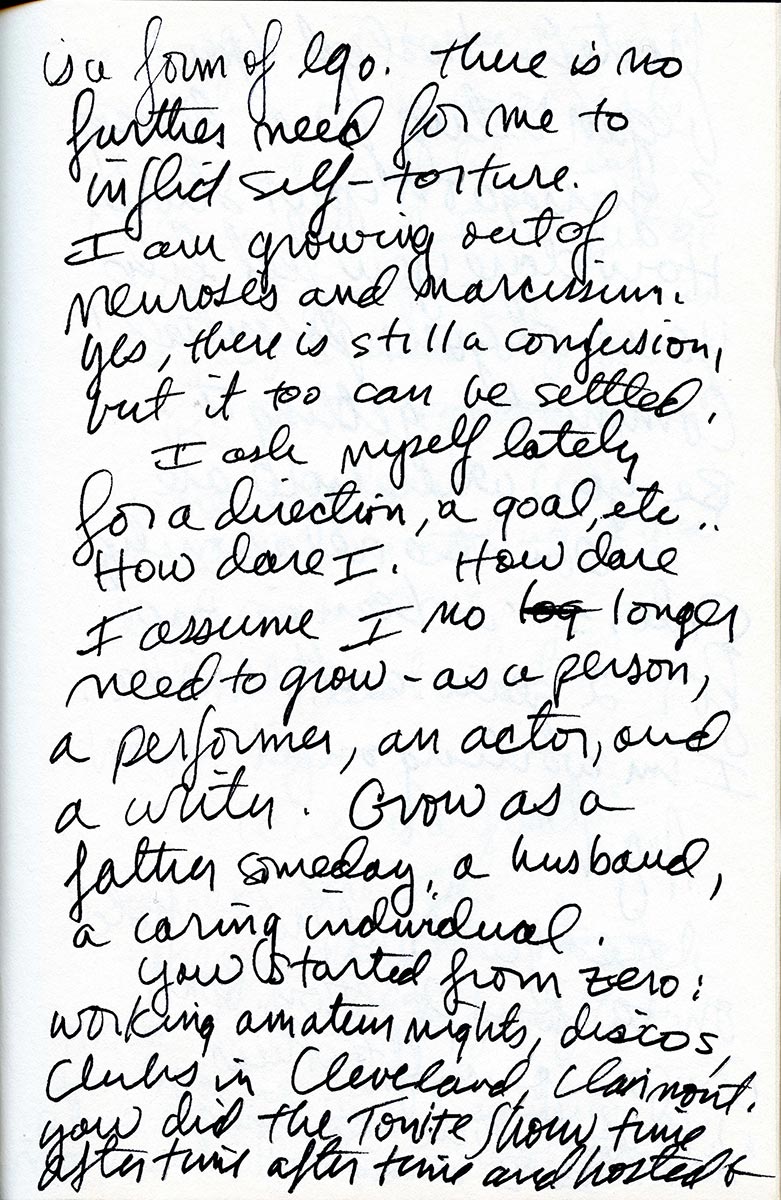 is a form of ego. There is no
further need for me to
inflict self-torture.
I am growing out of
neuroses and narcissism.
Yes, there is still a confusion,
but it too can be settled.
I ask myself lately
for a direction, a goal, etc..
How dare I. How dare
I assume I no log longer
need to grow - as a person,
a performer, an actor, and
a writer. Grow as a
father someday, a husband,
a caring individual.
You started from zero:
working amateur nights, discos,
Clubs in Cleveland, Clarimont.
you did the Tonite Show time
after time after time and hosted